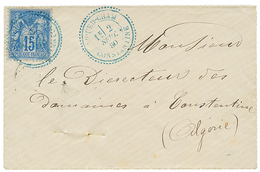 15
Monsieur
Le Directeur des
Domaines à Constantine
(Algérie)